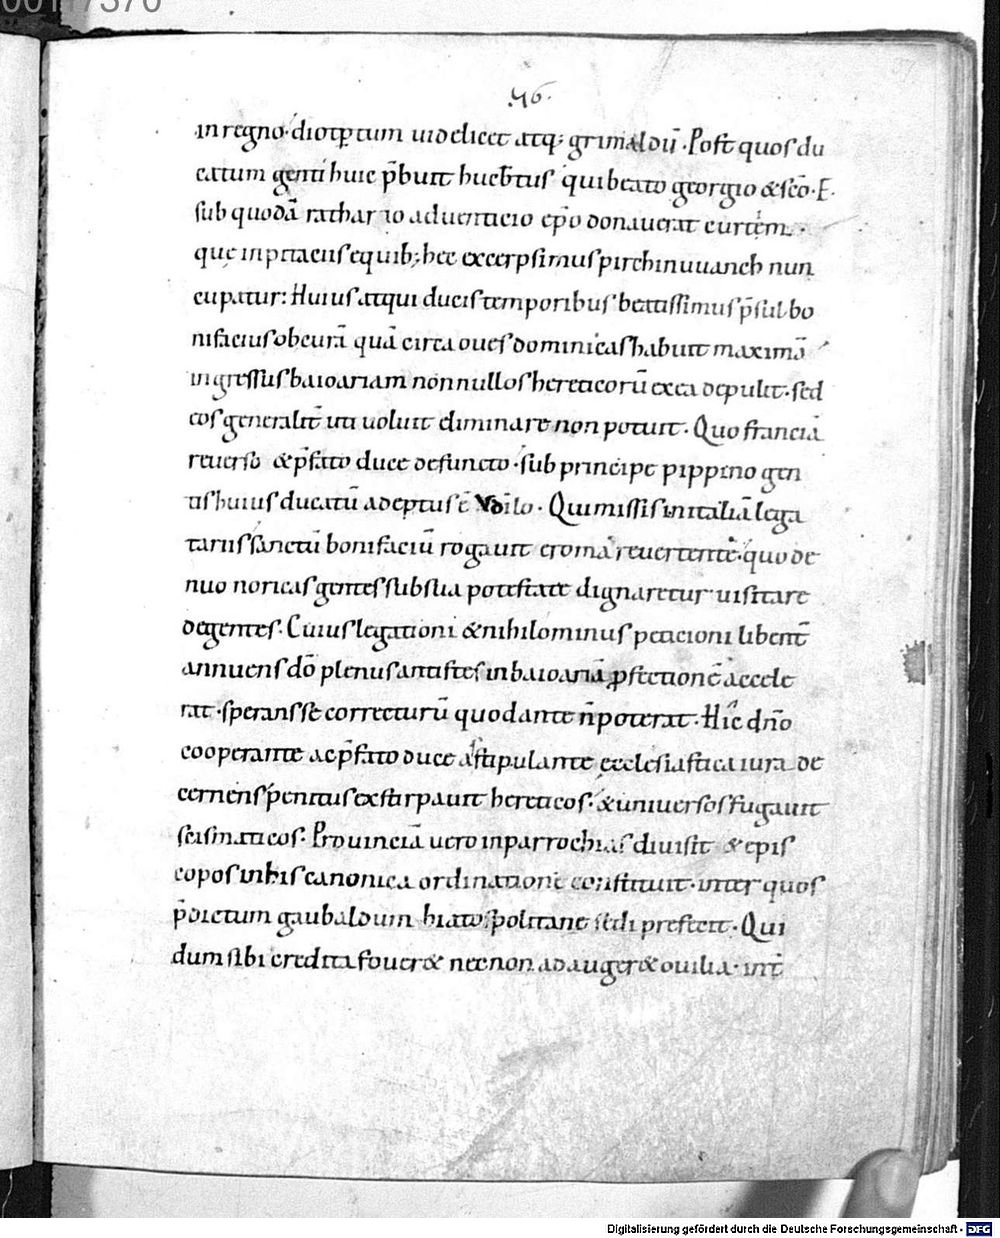 46.
in regno· diotptum uidelicet atq; grimaldū· Post quos du
catum genti huic p̄buit huebtus qui beato georgio & sc̄o· E·
sub quodā rathario aduenticio ep̄o donauerat curtem·
quę in pitacus equib; hec excerpsimus pirchinuuanch nun
cupatur: Huius atqui ducis temporibus beatissimus p̄sul bo
nifacius ob curā quā circa oues dominicas habuit maximā
ingressus baioariam nonnullos hereticorū ex ea depulit· sed
eos generalit̄ uti uoluit eliminare non potuit· Quo franciā
reuerso & p̄fato duce defuncto· sub principe pippino gen
tis huius ducatū adeptus ē Vodilo· Qui missis in italiā lega
tariis sanctū bonifaciū rogauit e romā reuertentē· quo de
nuo noricas gentes sub sua potestate dignaretur uisitare
degentes· Cuius legationi & nihilominus peticioni libent̄
annuens dō plenus antistes in baioariā ꝓfectionē accele
rat· sperans se correcturū quod ante n̄ poterat· Hic dn̄o
cooperante ac p̄fato duce astipulante ęcclesiastica iura de
cernens penitus exstirpauit hereticos· & uniuersos fugauit
scismaticos· Prouinciā uero in parrochias diuisit & epis
copos in his canonica ordinatione constituit· inter quos
p̄dictum gaubaldum hiatospolitane sedi prefecit· Qui
dum sibi credita fouer& necnon adauger& ouilia· int̄
Digitalisierung gefördert durch die Deutsche Forschungsgemeinschaft - DFG